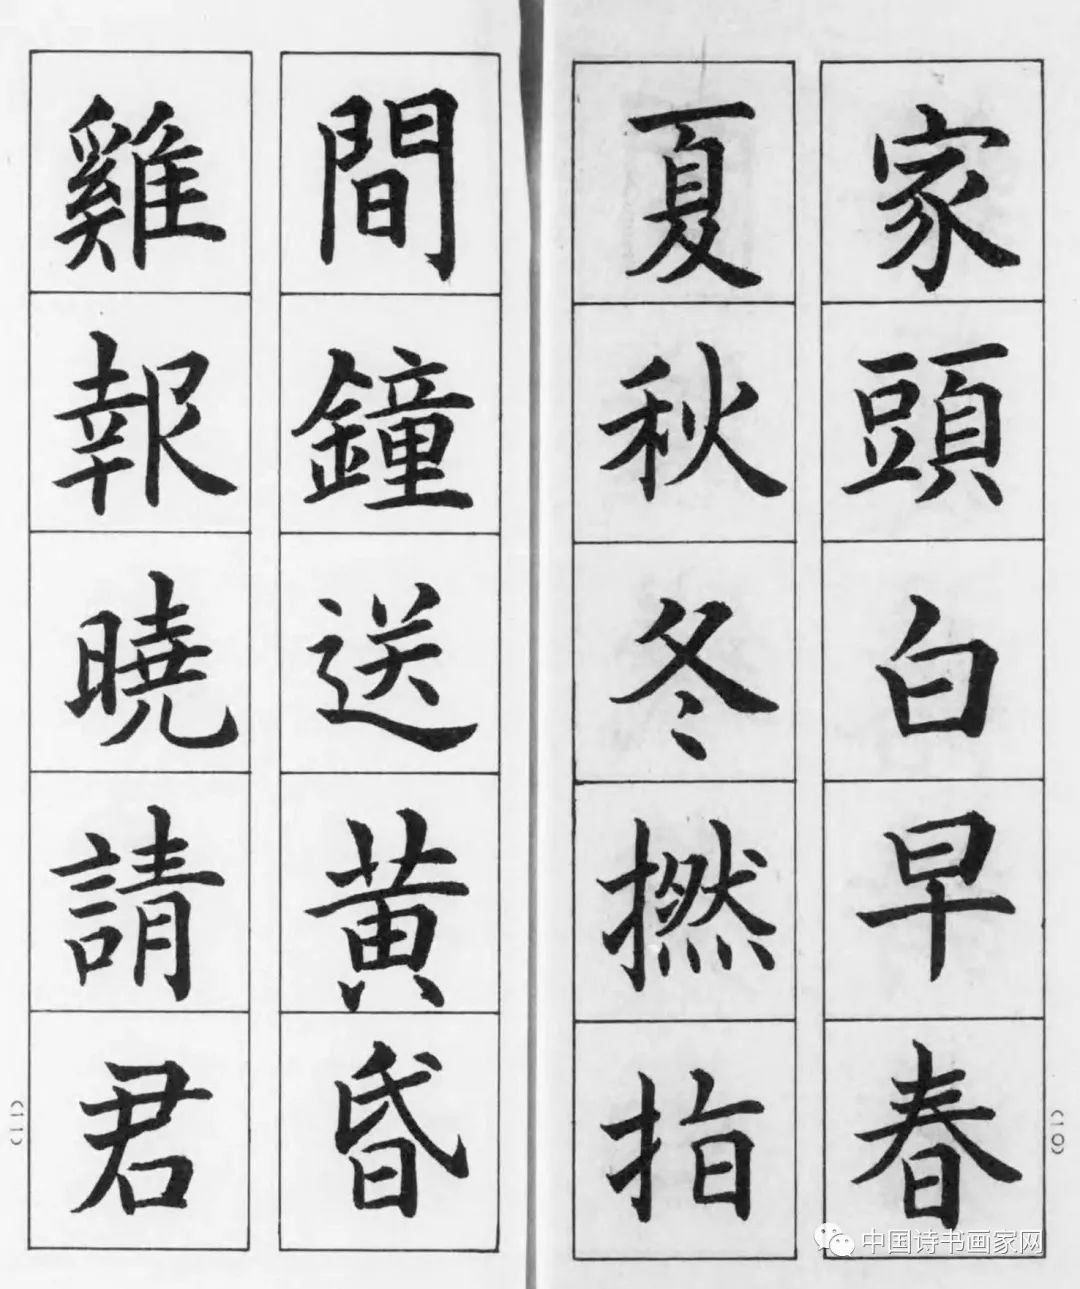 家頭白早春
夏秋冬撚指
間鐘送黄昏
雞報曉請君
(一〇)
(一一)
中国诗书画家网